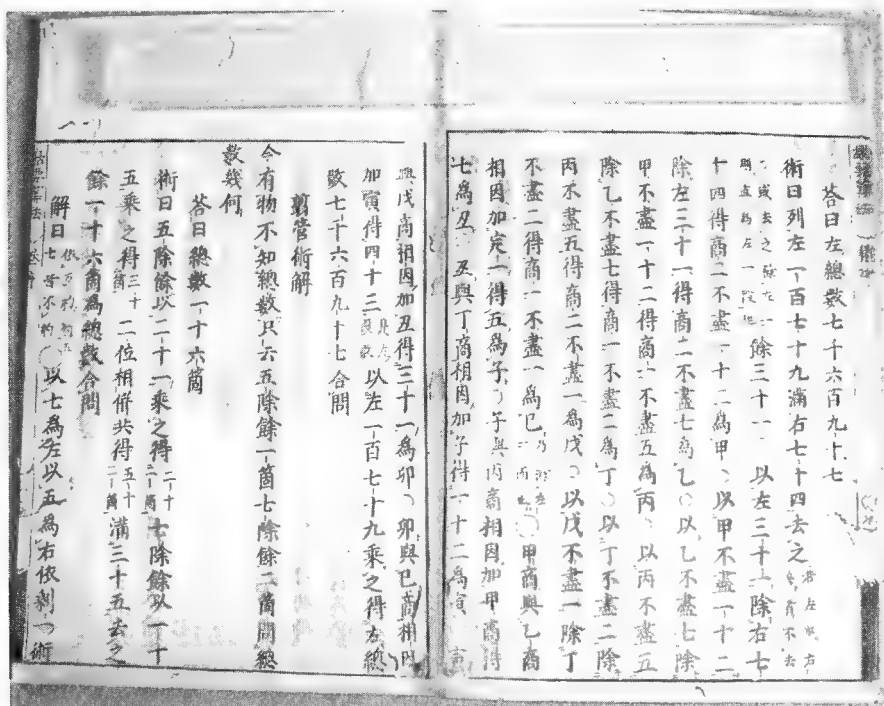 答曰左總數七千六百九十七
術曰列左一百七十九滿右七十四去之
餘三十一 以左三十一除右七
十四得商二不盡一十二為甲〇以甲不盡一十二
除左三十一得商二不盡七為乙〇以乙不盡七除
甲不盡一十二得商一不盡五為丙〇以丙不盡五
除乙不盡七得商一不盡二為丁〇以丁不盡二除
丙不盡五得商二不盡一為戊〇以戊不盡一除丁
不盡二得商一不盡一為巳 〇甲商與乙商
相因加定一得五為子〇子與丙商相因加甲商得
七為丑〇丑與丁商相因加子得一十二為寅〇寅
與戊商相因加丑得三十一為卯〇卯與巳商相因
加寅得四十三 以左一百七十九乘之得左總
數七千六百九十七合問
翦管術解
今有物不知總數只云五除餘一箇七除餘二箇問總
數幾何
答曰總數一十六箇
術曰五除餘以二十一乘之得二十一箇七除餘以一十
五乘之得三十箇二位相併共得五十一箇滿三十五去之
餘一十六箇為總數合問
解曰 〇以七為左以五為右依剩一術